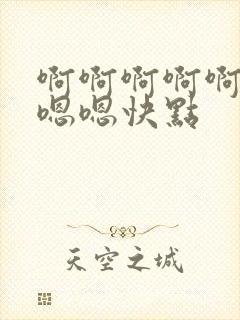 啊啊啊啊啊
嗯嗯快點
天空之城